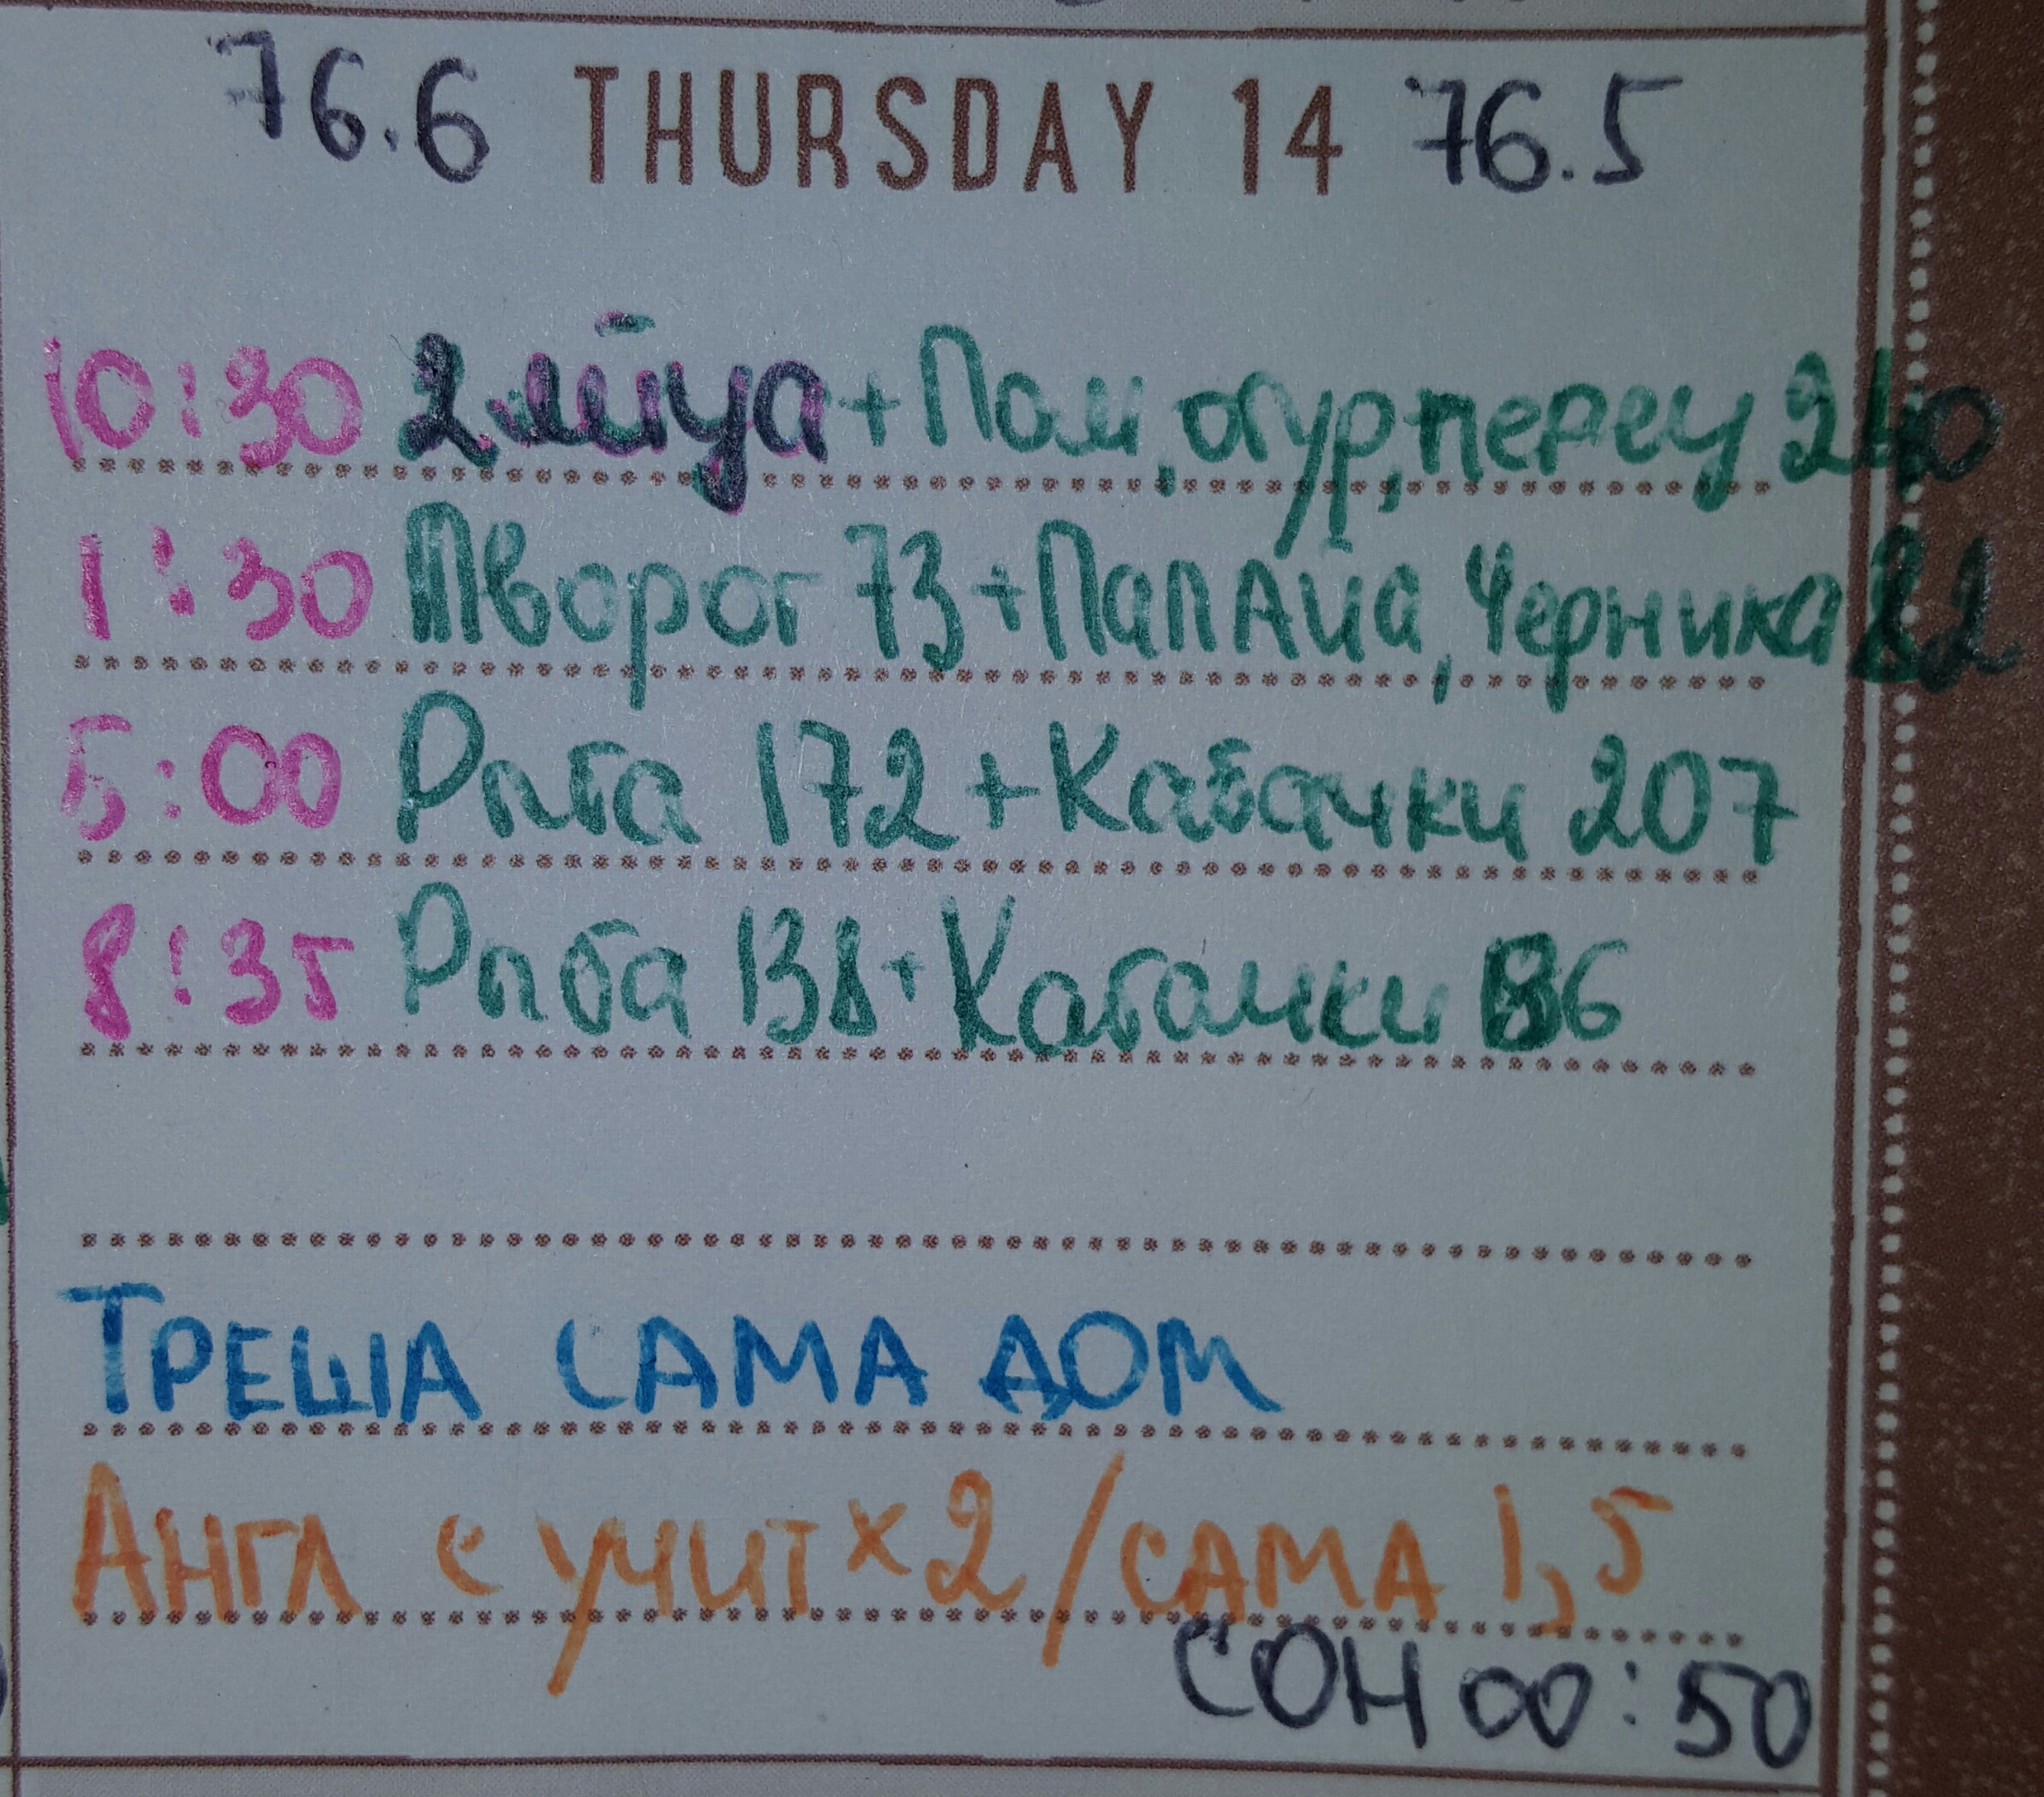 76.6 THURSDAY 14 76.5
10:30 2 яйца + Пом, огур, перец 240
1:30 Творог 73 + Папайа, Черника 82
5:00 Рыба 172 + Кабачки 207
8:35 Рыба 138 + Кабачки 86
ТРЕША САМА ДОМ
АНГЛ С УЧИТ x 2 / САМА 1,5
СОН 00:50